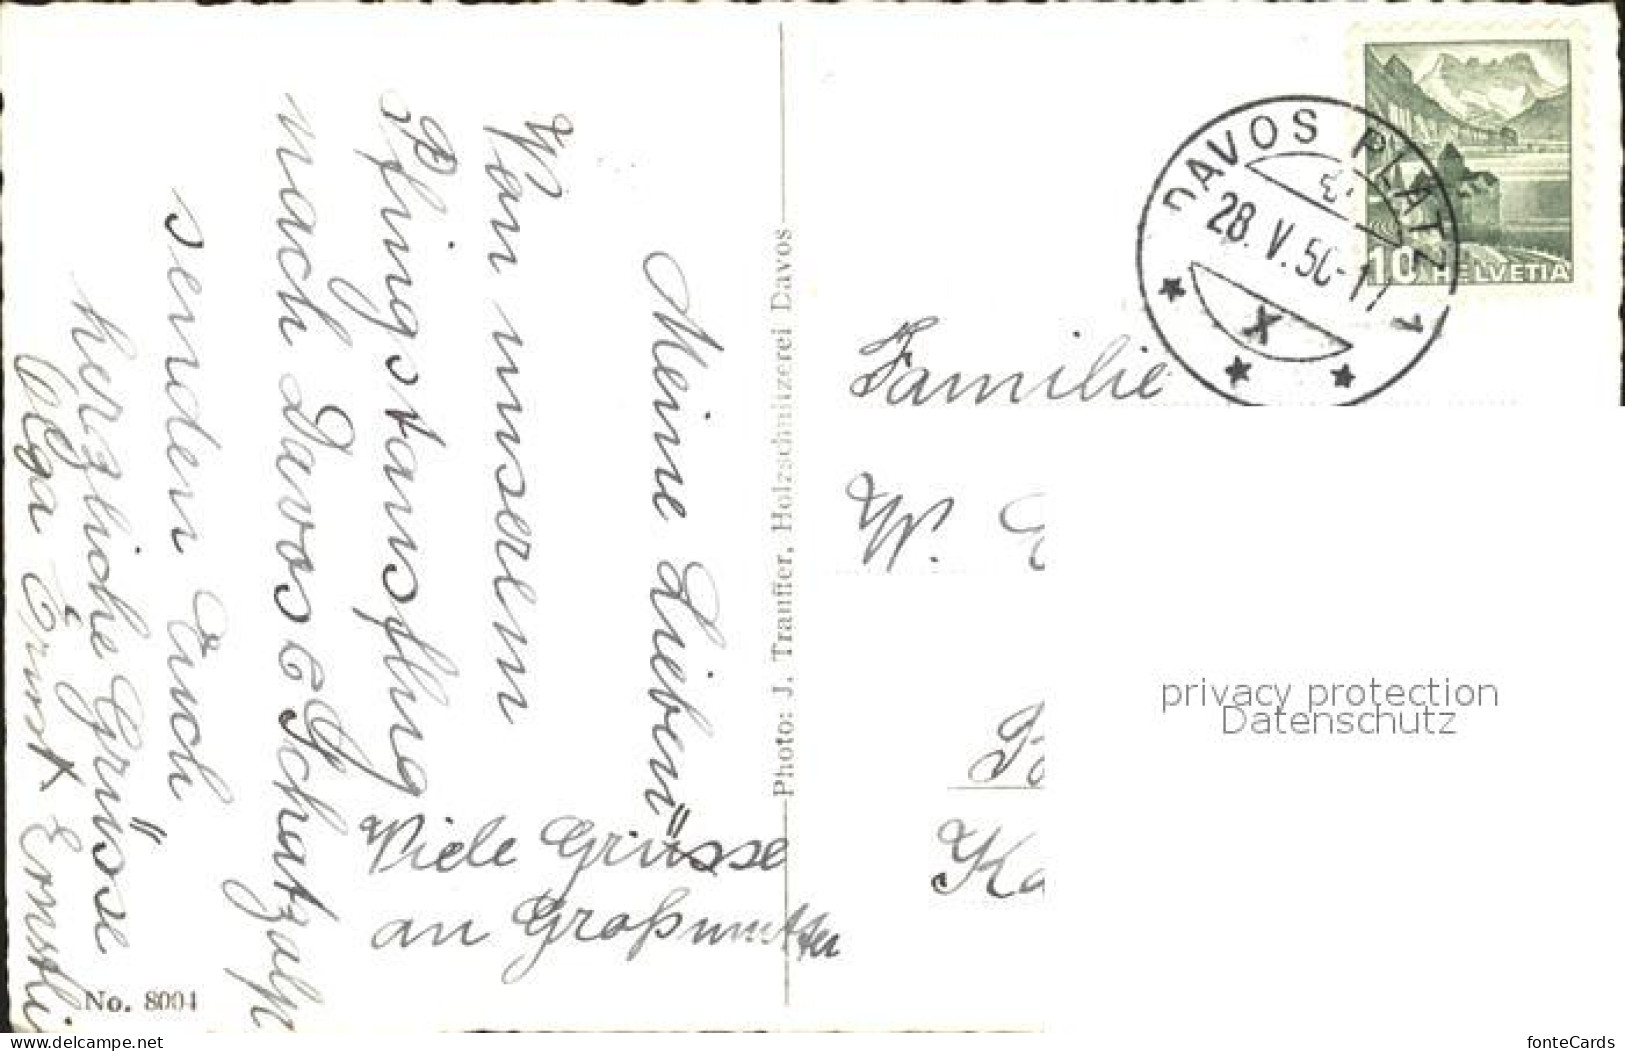 Meine Lieben
Von unserem
Pfingstausflug
nach Davos & Schatzalp
senden Euch
herzliche Grüsse
Olga Ernst & Ernstli
Viele Grüsse
an Großmutter
No. 8004
Photo: J. Trauffer, Holzschnitzerei Davos
DAVOS PLATZ 1
28. V. 50-17
X
10 HELVETIA
Familie
W.
privacy protection
Datenschutz
www.delcampe.net
fonteCards